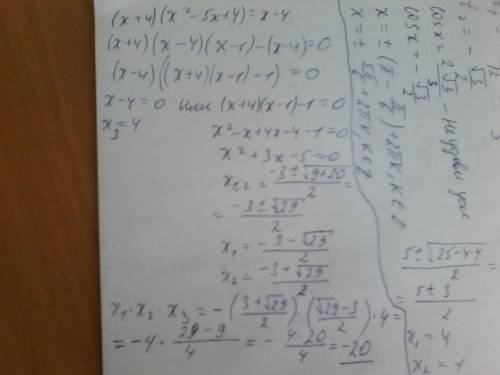 (x+4)(x²-5x+4)=x-4
(x+4)(x-4)(x-1)-(x-4)=0
(x-4)((x+4)(x-1)-1)=0
x-4=0 или (x+4)(x-1)-1=0
x₃=4
x²-x+4x-4-1=0
x²+3x-5=0
x₁,₂=(-3±√(9+20))/2=
=(-3±√29)/2
x₁=(-3-√29)/2
x₂=(-3+√29)/2
x₁·x₂·x₃=-((3+√29)/2)·((√29-3)/2)·4=
=-4·(29-9)/4=-(4·20)/4=-20
cosx=-√3/2
x=±(π-π/6)+2πk, k∈z
x=±5π/6+2πk, k∈z
(5±√(25-4·4))/2=
=(5±3)/2
x₁=4
x₂=1